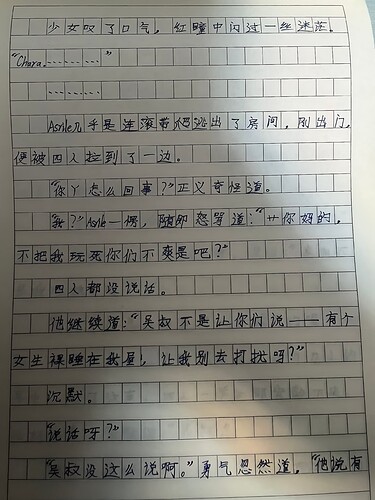 少女叹了口气，红瞳中闪过一丝迷茫。
“Chara.………”
………
Asrle几乎是连滚带爬逃出了房间，刚出门，
便被四人拉到了一边。
“你丫怎么回事？”正义奇怪道。
“我？”Asrle一愣，随即怒骂道：“艹你妈的，
不把我玩死你们不爽是吧？”
四人都没说话。
他继续道：“吴叔不是让你们说——有个
女生裸睡在我屋，让我别去打扰吗？”
沉默。
“说话呀？”
“吴叔没这么说啊。”勇气忽然道，“他说有